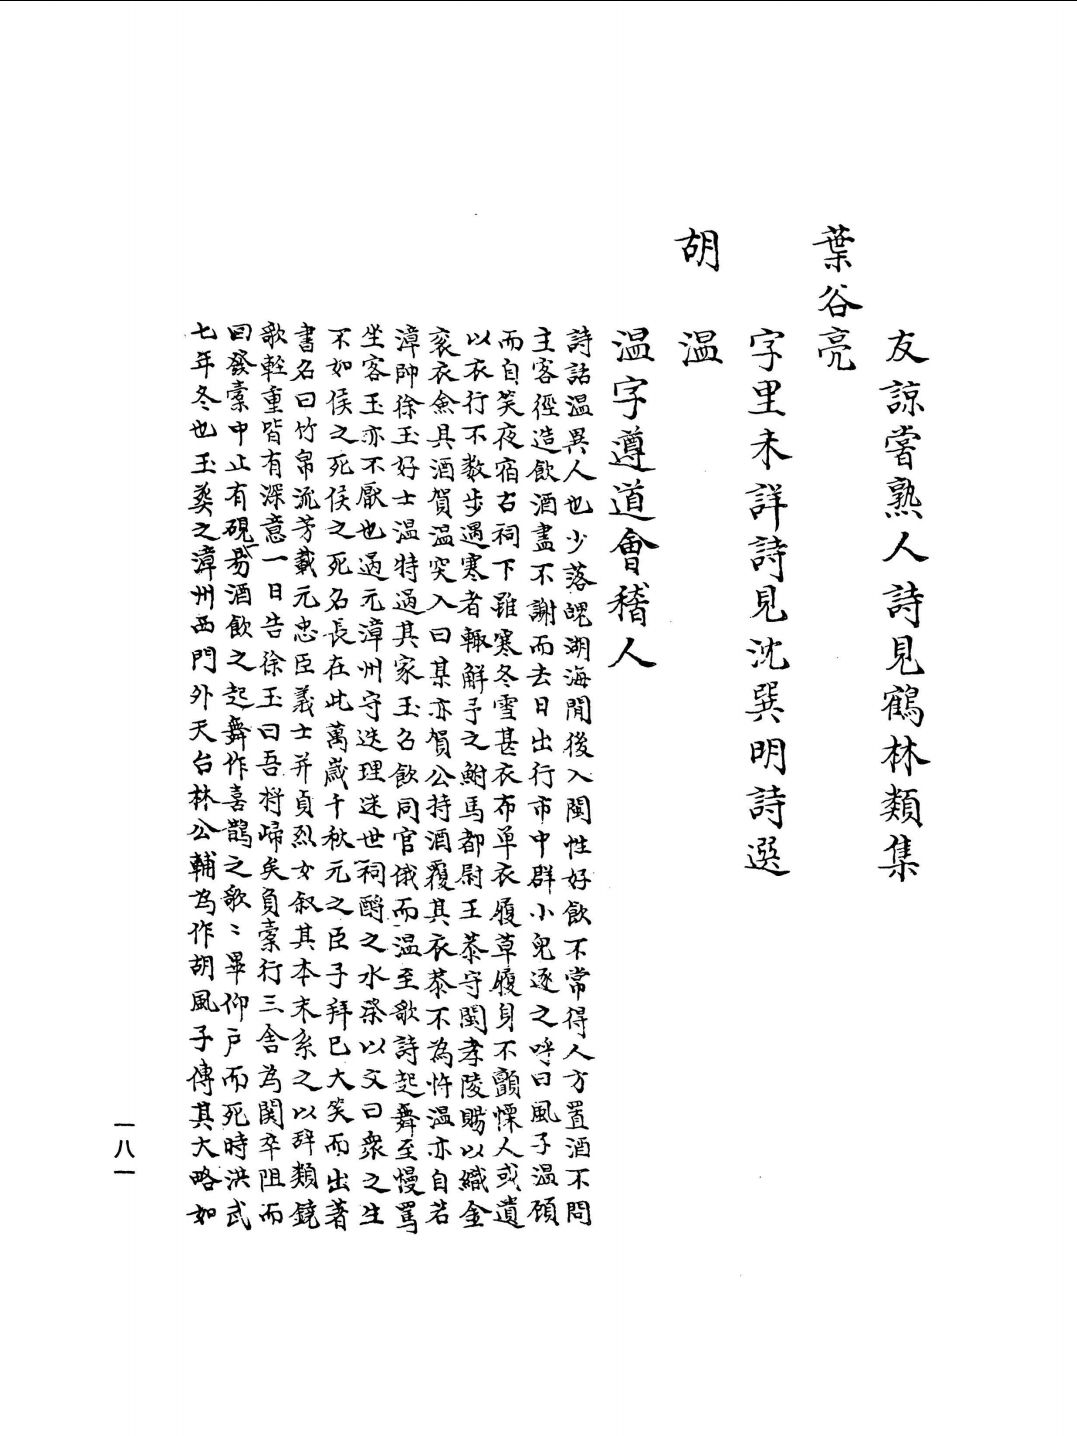 友諒嘗熟人詩見鶴林類集
葉谷亮
字里未詳詩見沈巽明詩選
胡　溫
溫字遵道會稽人
詩話溫異人也少落魄湖海閒後入閩性好飲不常得人方置酒不問
主客徑造飲酒盡不謝而去日出行市中群小兒逐之呼曰風子溫顧
而自笑夜宿古祠下雖寒冬雪甚衣布单衣履草履身不顫慄人或遺
以衣行不数步遇寒者輙解予之駙馬都尉王恭守閩孝陵賜以織金
衮衣僉具酒賀溫突入曰某亦賀公持酒覆其衣恭不為忤溫亦自若
漳帥徐玉好士溫特過其家玉召飲同官俄而溫至歌詩起舞至慢罵
坐客玉亦不厭也過元漳州守迭理迷世祠酹之水祭以文曰衆之生
不如侯之死侯之死名長在此萬歲千秋元之臣子拜已大笑而出著
書名曰竹帛流芳載元忠臣義士并貞烈女叙其本末系之以辞類鐃
歌輊重皆有深意一日告徐玉曰吾将歸矣負橐行三舍為関卒阻而
囙發橐中止有硯一易酒飲之起舞作喜鵲之歌〻畢仰户而死時洪武
七年冬也玉葬之漳州西門外天台林公輔為作胡風子傳其大略如
一八一